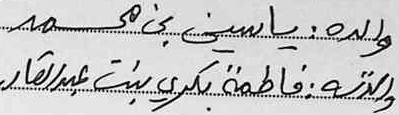 والده : ياسين بن محمد
والدته : فاطمة بكري بنت عبدالقادر